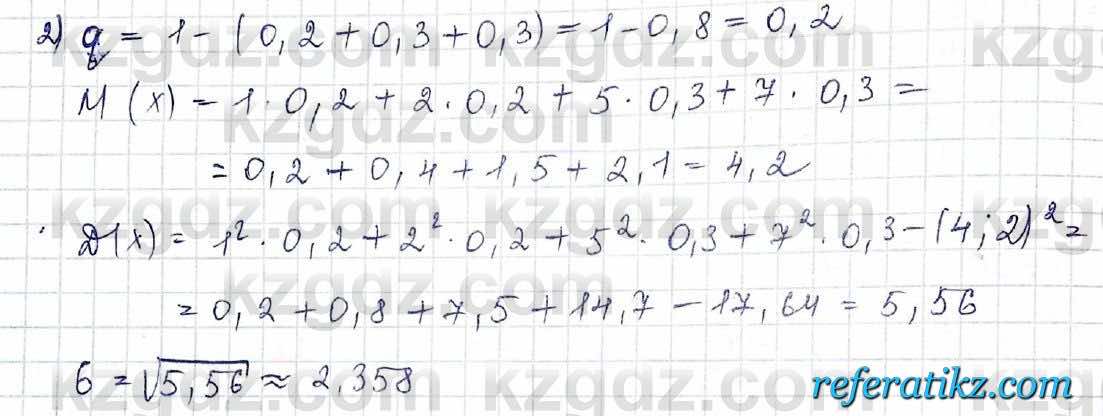 2) q = 1 - (0,2 + 0,3 + 0,3) = 1 - 0,8 = 0,2
M(x) = 1 · 0,2 + 2 · 0,2 + 5 · 0,3 + 7 · 0,3 =
= 0,2 + 0,4 + 1,5 + 2,1 = 4,2
D(x) = 1² · 0,2 + 2² · 0,2 + 5² · 0,3 + 7² · 0,3 - (4;2)² =
= 0,2 + 0,8 + 7,5 + 14,7 - 17,64 = 5,56
б = √5,56 ≈ 2,358
referatikz.com
kzgdz.com